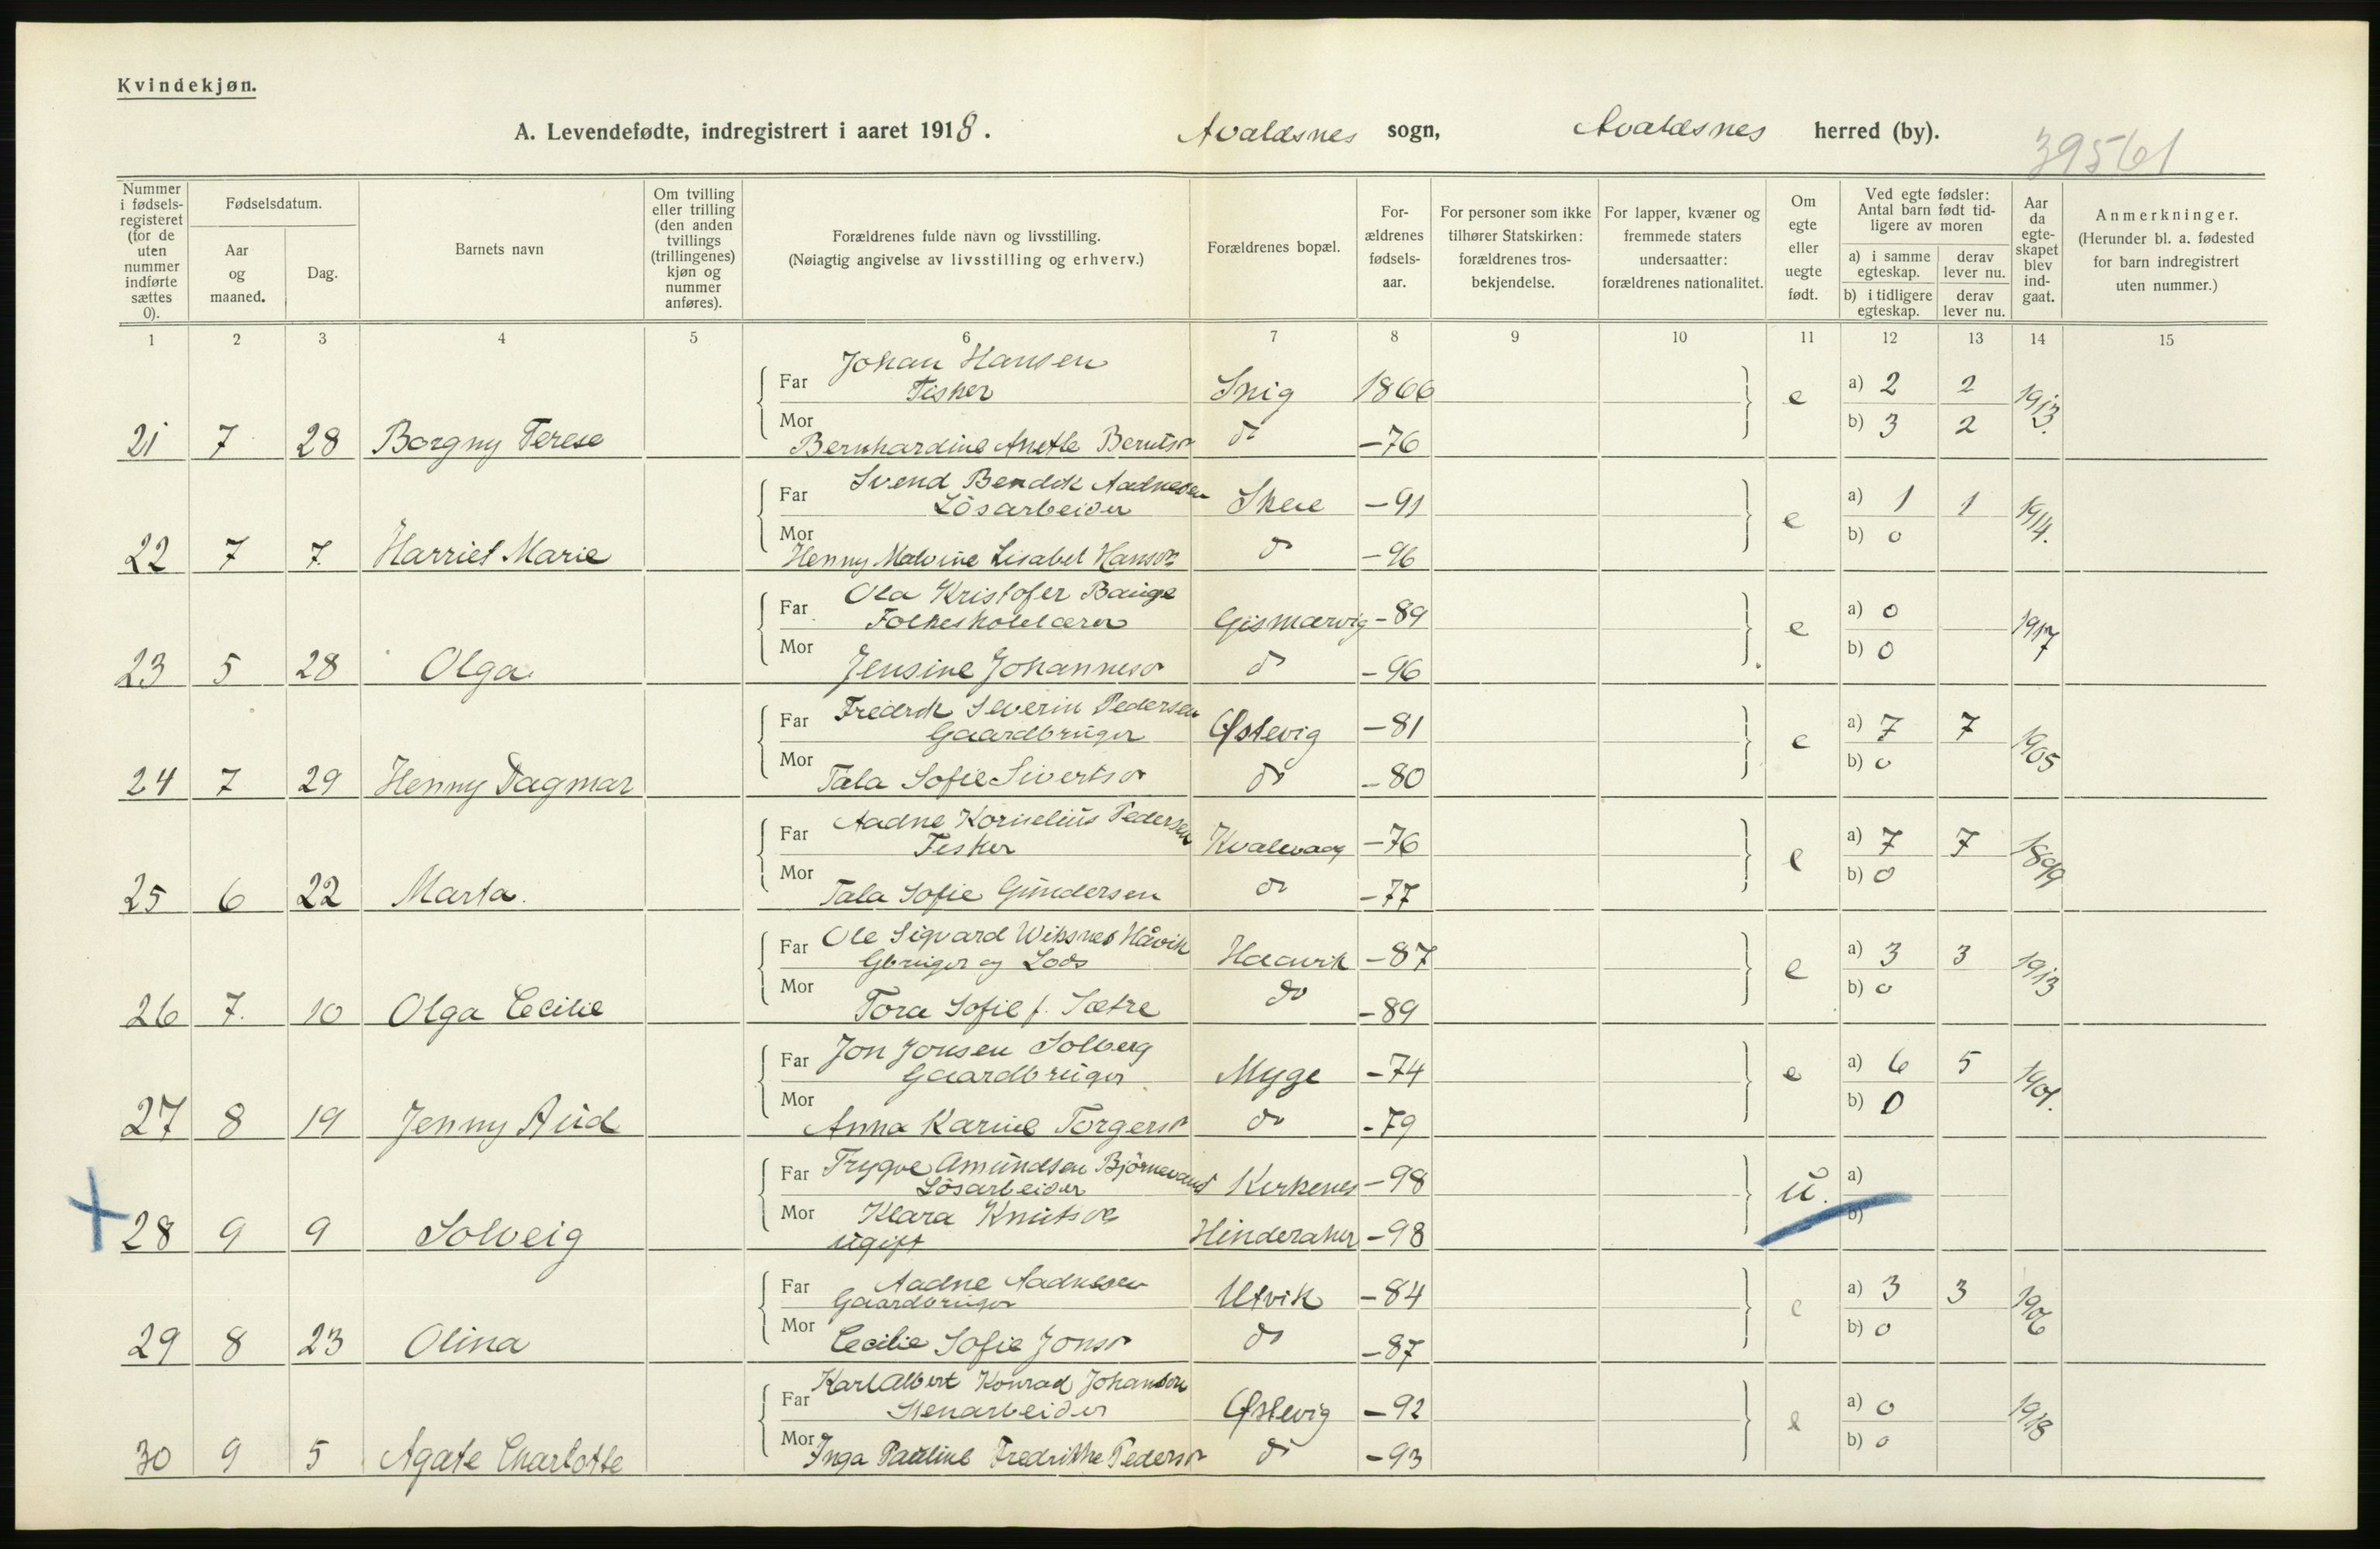 Kvindekjøn.
A. Levendefødte, indregistrert i aaret 1918. Avaldsnes sogn, Avaldsnes herred (by).
39561
Nummer i fødsels-registeret (for de uten nummer indførte sættes 0).
Fødselsdatum.
Aar og maaned.
Dag.
Barnets navn
Om tvilling eller trilling (den anden tvillings (trillingenes) kjøn og nummer anføres).
Forældrenes fulde navn og livsstilling.
(Nøiagtig angivelse av livsstilling og erhverv.)
Forældrenes bopæl.
For-ældrenes fødsels-aar.
For personer som ikke tilhører Statskirken: forældrenes tros-bekjendelse.
For lapper, kvæner og fremmede staters undersaatter: forældrenes nationalitet.
Om egte eller uegte født.
Ved egte fødsler: Antal barn født tid-ligere av moren
a) i samme egteskap. derav lever nu.
b) i tidligere egteskap. derav lever nu.
Aar da egte-skapet blev ind-gaat.
Anmerkninger.
(Herunder bl. a. fødested for barn indregistrert uten nummer.)
1 2 3 4 5 6 7 8 9 10 11 12 13 14 15
Johan Hansen
Far Fisker Snig 1866 e a) 2 2 1913.
Mor b) 3 2
21 7 28 Borgny Terese Bernhardine Anette Berntsr do -76
Svend Bendik Aadnesen
Far Lösarbeider Skeie -91 e a) 1 1 1914.
Mor b) 0
22 7 7. Harriet Marie Henny Malvine Lisabet Hansdr do -96
Ola Kristofer Bauge
Far Folkeskolelærer Gismarvig -89 e a) 0 1917
Mor b) 0
23 5 28 Olga Jensine Johannesdr do -96
Fredrik Severin Pedersen
Far Gaardbruger Østevig -81 e a) 7 7 1905
Mor b) 0
24 7 29 Henny Dagmar Tala Sofie Sivertsdr do -80
Aadne Kornelius Pedersen
Far Fisker Kvalevaag -76 e a) 7 7 1899
Mor b) 0
25 6 22 Marta. Tala Sofie Gundersen do -77
Ole Sigvard Wiksnes Håvik
Far Gbruger og Lods Haavik -87 e a) 3 3 1913
Mor b) 0
26 7. 10 Olga Cecilie Tora Sofie f. Sætre do -89
Jon Jonsen Solberg
Far Gaardbruger Myge -74 e a) 6 5 1901.
Mor b) 0
27 8 19 Jenny Aud Anna Karine Torgersdr do -79
Trygve Amundsen Björnevand
Far Lösarbeider Kirkenes -98 u. a)
Mor Klara Knutsdr b)
28 9 9 Solveig ugift Hinderaker -98
Aadne Aadnesen
Far Gaardbruger Utvik -84 e a) 3 3 1906
Mor b) 0
29 8 23 Olina Cecilie Sofie Jonsdr do -87
Karl Albert Konrad Johansen
Far Stenarbeider Østevig -92 e a) 0 1918
Mor b) 0
30 9 5 Agate Charlotte Inga Pauline Fredrikke Pedersdr do -93